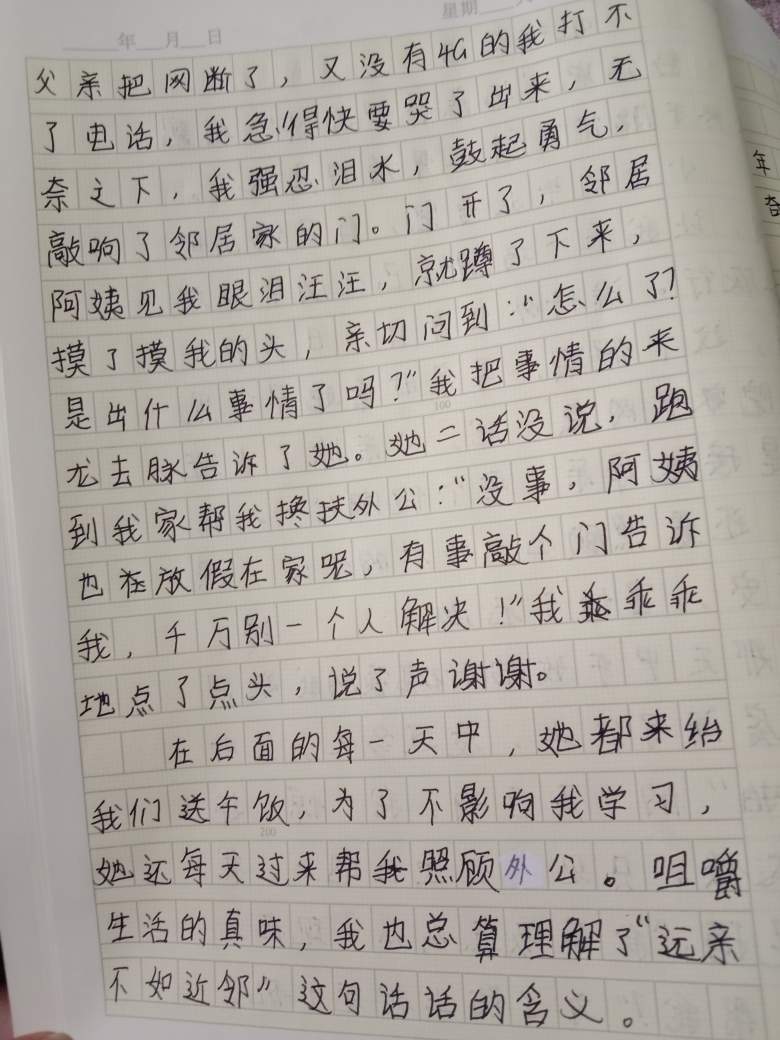 年 月 日 星期
父亲把网断了，又没有4G的我打不
了电话，我急得快要哭了出来，无
奈之下，我强忍泪水，鼓起勇气，
敲响了邻居家的门。门开了，邻居
阿姨见我眼泪汪汪，就蹲了下来，
摸了摸我的头，亲切问到："怎么了？
是出什么事情了吗？"我把事情的来
龙去脉告诉了她。她二话没说，跑
到我家帮我搀扶外公："没事，阿姨
也在放假在家呢，有事敲个门告诉
我，千万别一个人解决！"我乖乖
地点了点头，说了声谢谢。
在后面的每一天中，她都来给
我们送午饭，为了不影响我学习，
她还每天过来帮我照顾外公。咀嚼
生活的真味，我也总算理解了"远亲
不如近邻"这句话话的含义。
100
200
年